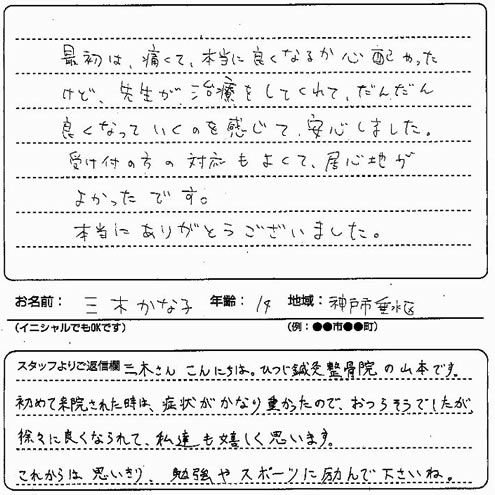 最初は、痛くて、本当に良くなるか心配やった
けど、先生が治療をしてくれて、だんだん
良くなっていくのを感じて、安心しました。
受け付の方の対応もよくて、居心地が
よかったです。
本当にありがとうございました。
お名前： 三木かな子 年齢： 14 地域： 神戸市垂水区
(イニシャルでもOKです) (例：●●市●●町)
スタッフよりご返信欄 三木さん こんにちは。ひつじ鍼灸整骨院の山本です。
初めて来院された時は、症状がかなり重かったので、おつらそうでしたが、
徐々に良くなられて、私達も嬉しく思います。
これからは思いきり、勉強やスポーツに励んで下さいね。